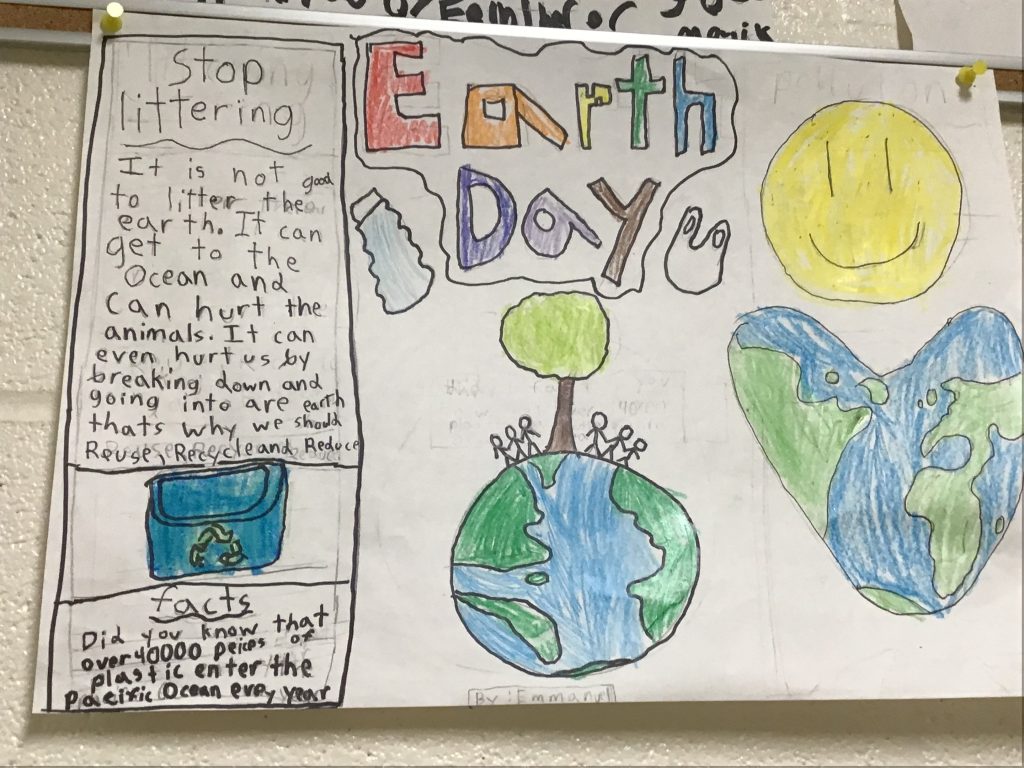 Stop
littering
It is not good
to litter the
earth. It can
get to the
Ocean and
Can hurt the
animals. It can
even hurt us by
breaking down and
going into are earth
thats why we should
Reuse, Recycle and Reduce
facts
Did you know that
over 40000 peices of
plastic enter the
pacific Ocean every year
Earth
Day
By: Emmanuel